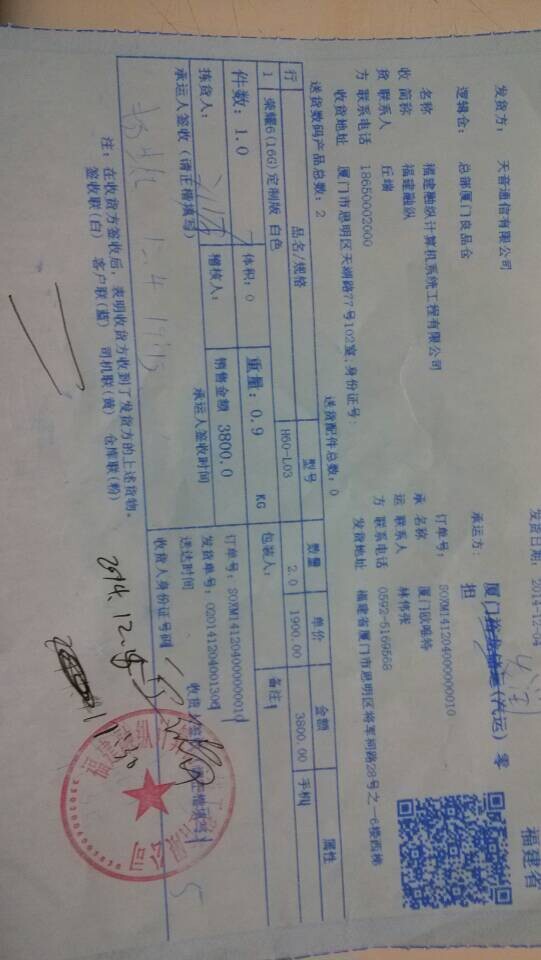 福建省
发货日期: 2014-12-04
发货方: 天音通信有限公司
承运方: (汽运) 零担
逻辑仓: 总部厦门良品仓
订单号: SOXM14120400000010
收货方
名称 福建融纵计算机系统工程有限公司
简称 福建融纵
联系人 丘端
联系电话 18650002000
收货地址 厦门市思明区天湖路77号102室,身份证号:
承运方
名称 厦门欧唯特
联系人 林伟强
联系电话 0592-5169568
发货地址 福建省厦门市思明区将军祠路28号之一6楼西梯
送货数码产品总数: 2 送货配件总数: 0
行 品名/规格 型号 数量 单价 金额 属性
1 荣耀6(16G)定制版 白色 H60-L03 2.0 1900.00 3800.00 手机
件数: 1.0 体积: 0 重量: 0.9 KG 包装人: 备注:
拣货人: 稽核人: 销售金额 3800.0 订单号: SOXM14120400000010
发货单号:
承运人签收 (请正楷填写) 承运人签收时间 送达时间
收货人身份证号码
注: 在收货方签收后, 表明收货方收到了发货方的上述货物。
签收联(白) 客户联(蓝) 司机联(黄) 仓库联(粉)